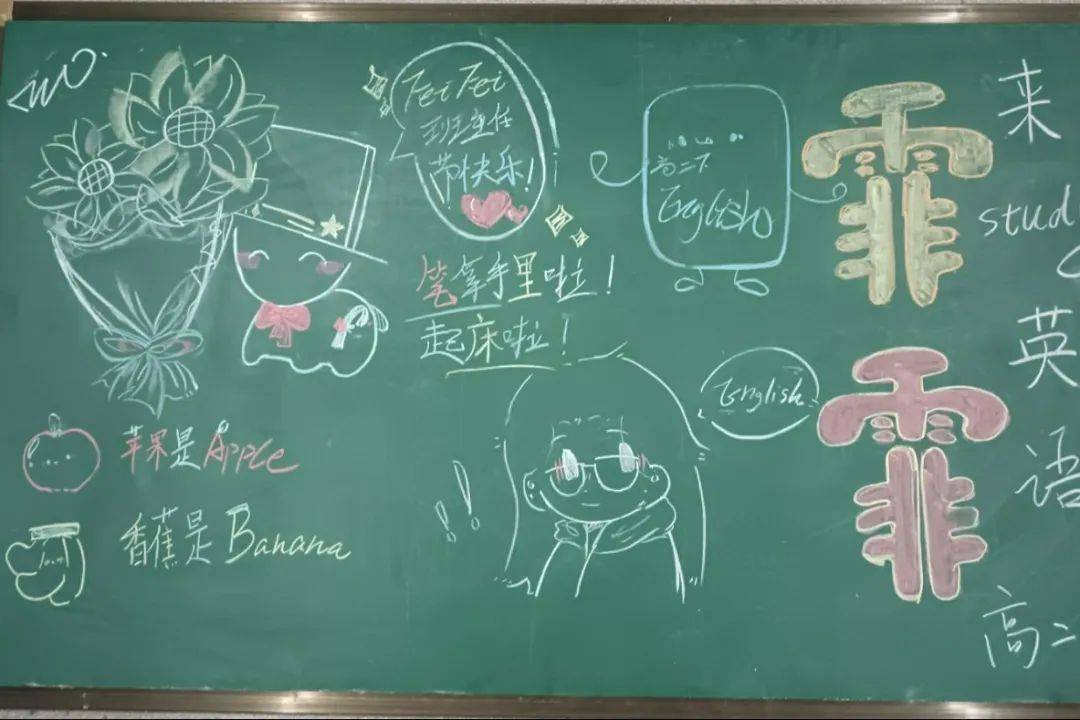 FeiFei
班主任
节快乐!
笔拿手里啦!
起床啦!
高二下
English
霏
霏
English
!!
苹果是Apple
香蕉是Banana
来
stud
英
语
高二